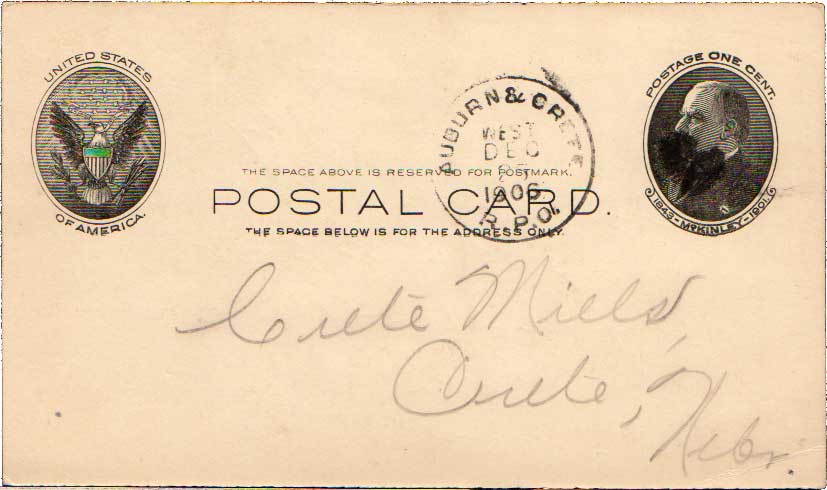 UNITED STATES
OF AMERICA.
POSTAGE ONE CENT.
1843-McKINLEY-1901.
AUBURN & CRETE
WEST
DEC
1906
R.P.O.
THE SPACE ABOVE IS RESERVED FOR POSTMARK.
POSTAL CARD.
THE SPACE BELOW IS FOR THE ADDRESS ONLY.
Crete Mills,
Crete, Nebr.